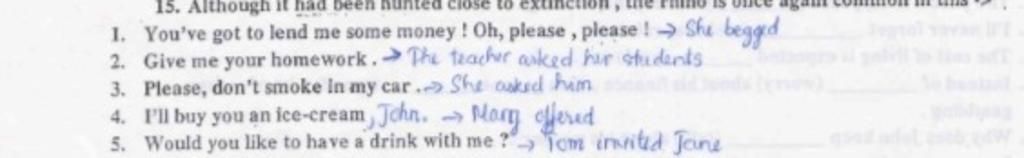 15. Although it had been hunted close to extinction, the rhino is once again common in this
1. You've got to lend me some money! Oh, please, please! → She begged
2. Give me your homework. → The teacher asked her students
3. Please, don't smoke in my car. → She asked him
4. I'll buy you an ice-cream, John. → Mary offered
5. Would you like to have a drink with me? → Tom invited Jane